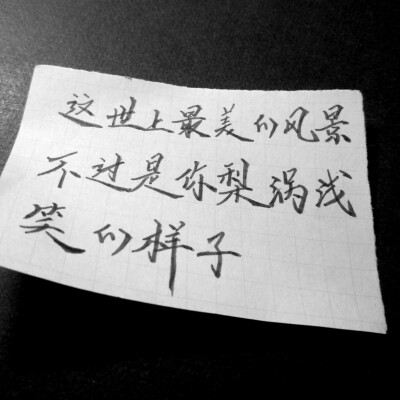 这世上最美的风景
不过是你梨涡浅
笑的样子